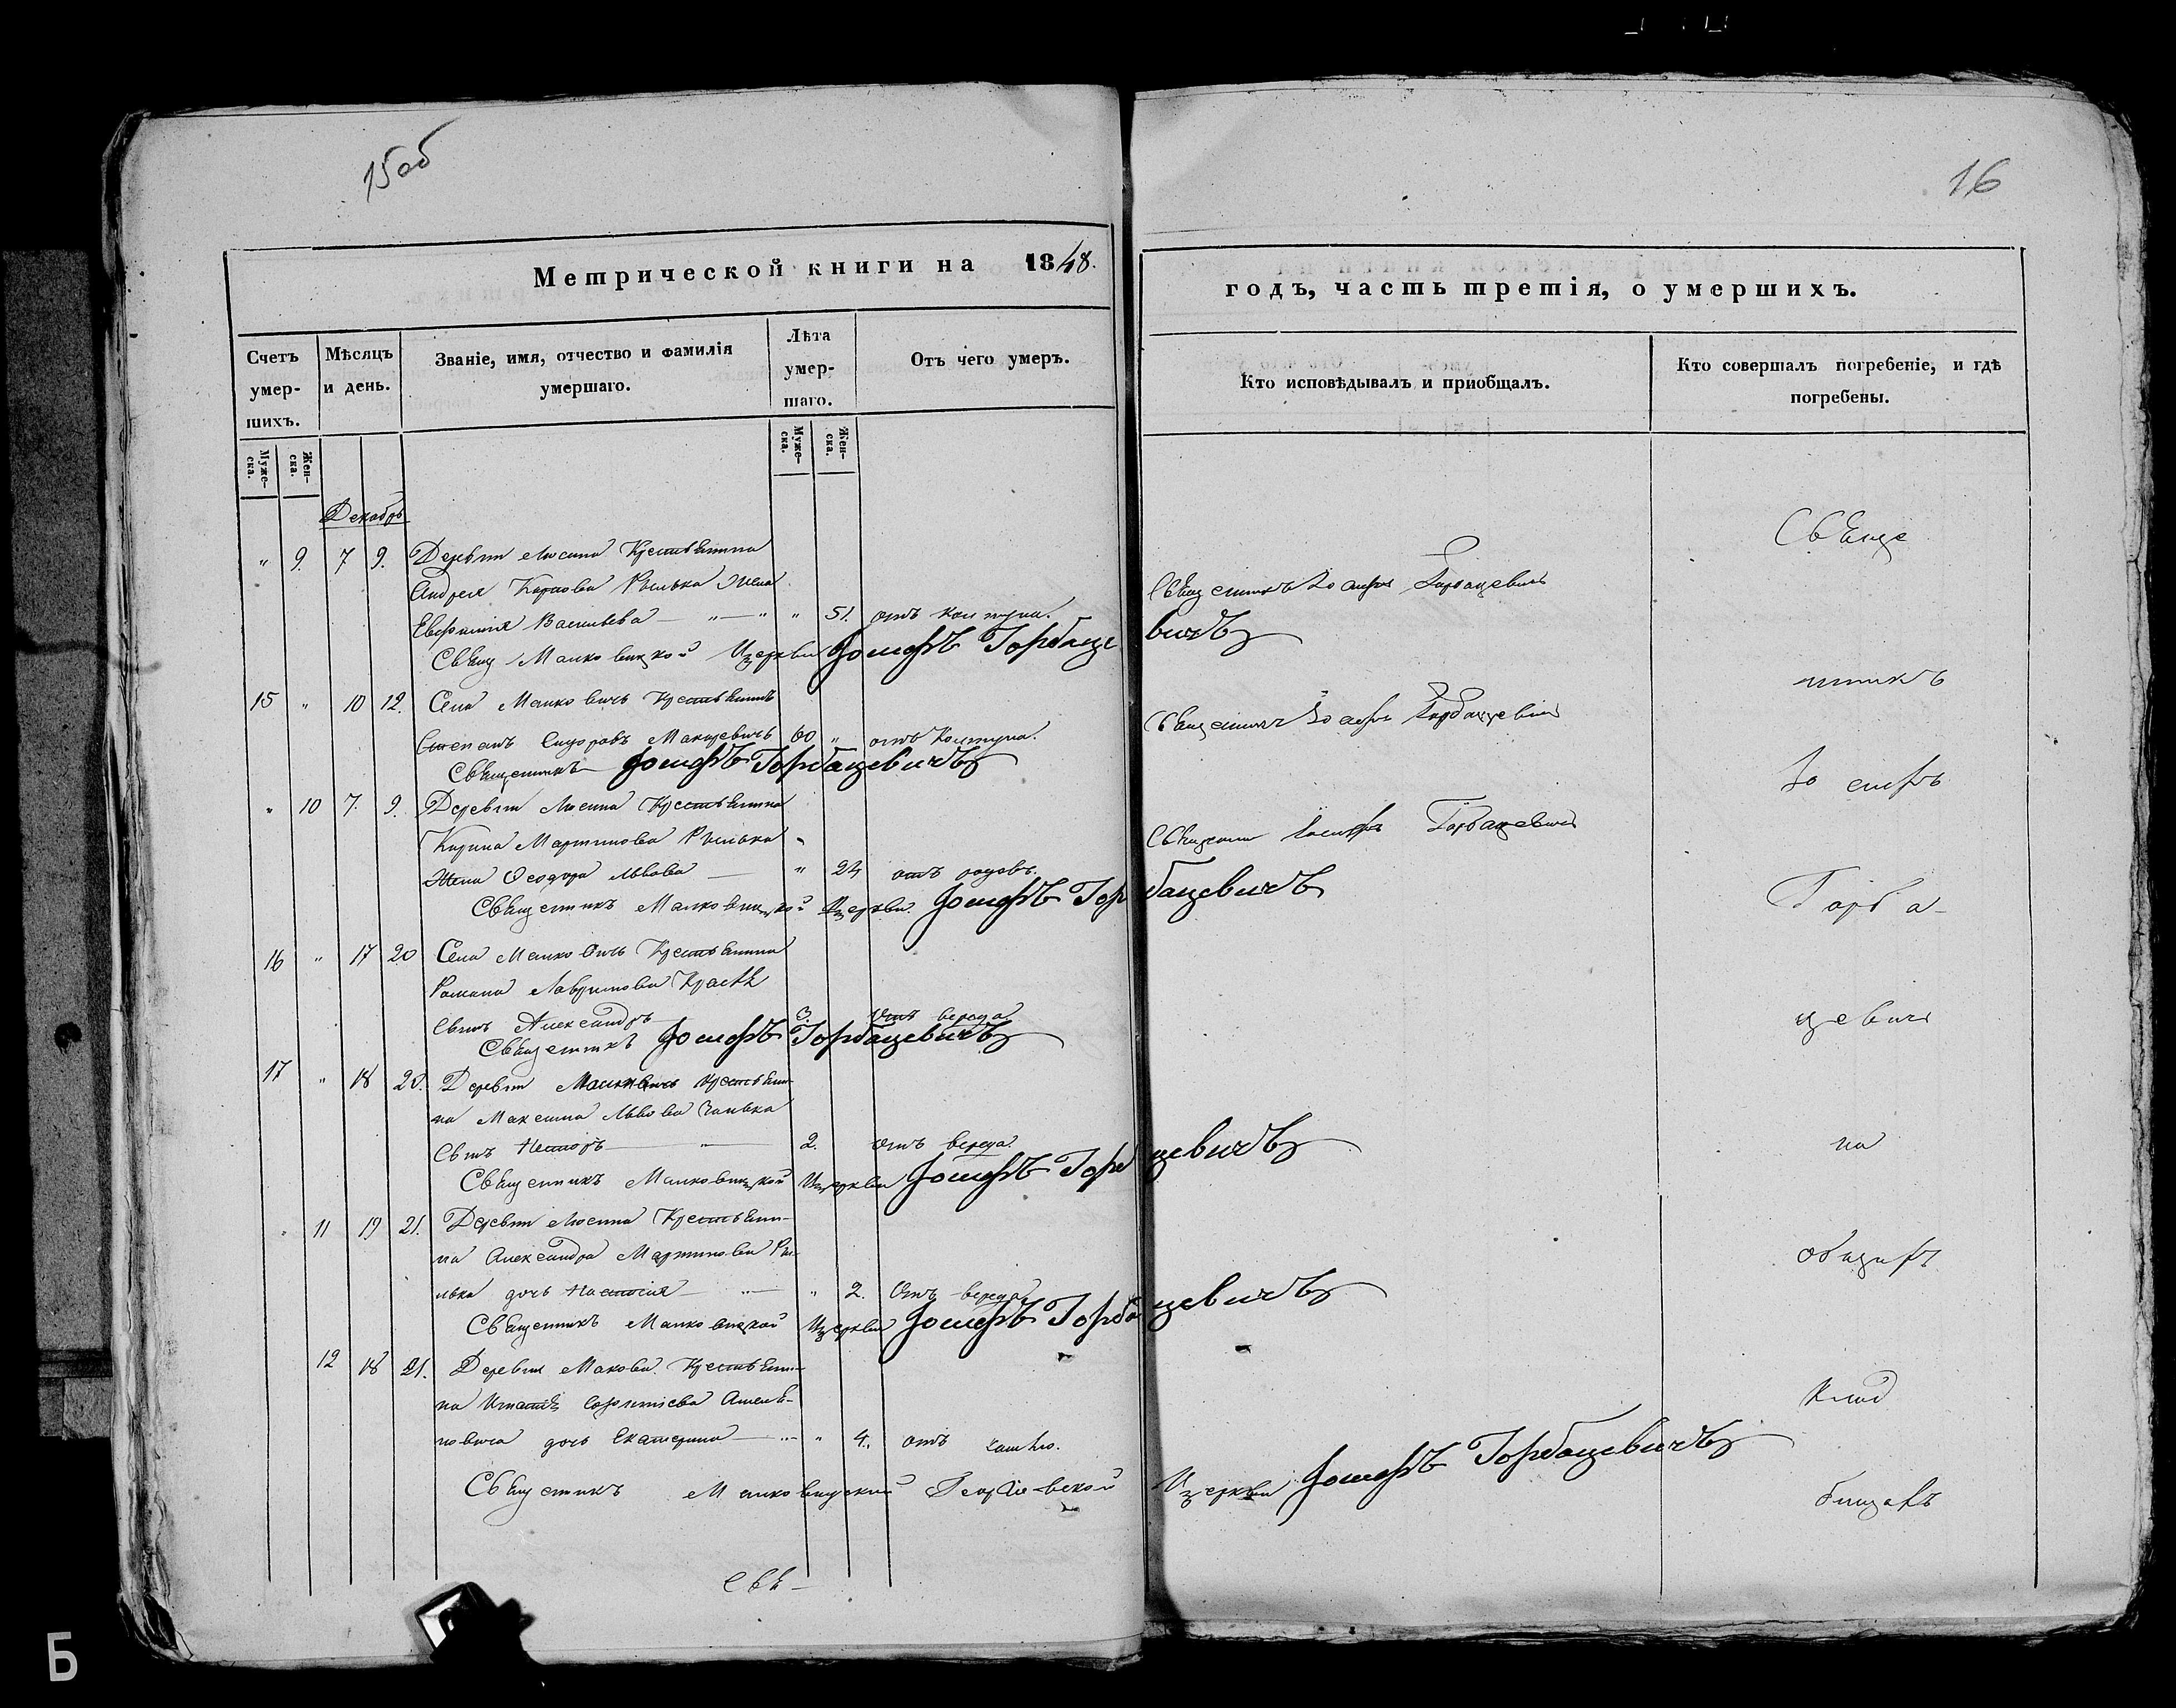 15об
16
Метрической книги на 1848.
годъ, часть третія, о умершихъ.
Счетъ умер-шихъ.
Мѣсяцъ и день.
Званіе, имя, отчество и фамилія умершаго.
Лѣта умер-шаго.
Отъ чего умеръ.
Кто исповѣдывалъ и приобщалъ.
Кто совершалъ погребеніе, и гдѣ погребены.
Муже-ска.
Жен-ска.
Муже-ска.
Жен-ска.
Декабрь
" 9. 7 9. Деревни Люсина Крестьянина
Андрея Карпова Рылька жена
Евфимія Васильева " " 51. отъ колтуна.
Священникъ Іосифъ Горбацевичъ
Свящ Малковицкой Церкви Іосифъ Горбацевичъ
15 " 10 12. Села Малковичь Крестьянинъ
Степанъ Сидоровъ Мацкевичь 60 " отъ Колтуна.
Священникъ Іосифъ Горбацевичъ
Священникъ Іосифъ Горбацевичъ
" 10 7. 9. Деревни Люсина Крестьянина
Мартинова Рылька
Жена Ѳеодора Львова " 24 отъ родовъ.
Іосифъ Горбацевичъ
Священникъ Малковицкой Церкви Іосифъ Горбацевичъ
16 " 17 20 Села Малковичь Крестьянина
Романа
Сынъ Александръ 3. Отъ вереда
Священникъ Іосифъ Горбацевичъ
17 " 18 20. Деревни Малковичь Крестьяни-
на Максима Львова
Сынъ Несторъ " 2. Отъ вереда.
Священникъ Малковицкой Церкви Іосифъ Горбацевичъ
" 11 19 21. Деревни Люсина Крестьяни-
на Александра Мартинова Ры-
лька дочь Настасія " " 2. Отъ вереда
Священникъ Малковицкой Церкви Іосифъ Горбацевичъ
12 18 21. Деревни Макова Крестьяни-
на Игнатія Амелья-
новича дочь Екатерина " " 4. отъ кашлю.
Священникъ Малковицкой Церкви Іосифъ Горбацевичъ
Свяще
нникъ
Іосифъ
Горба-
цевичъ
на
общемъ
Клад
бищахъ
Свя-
Б